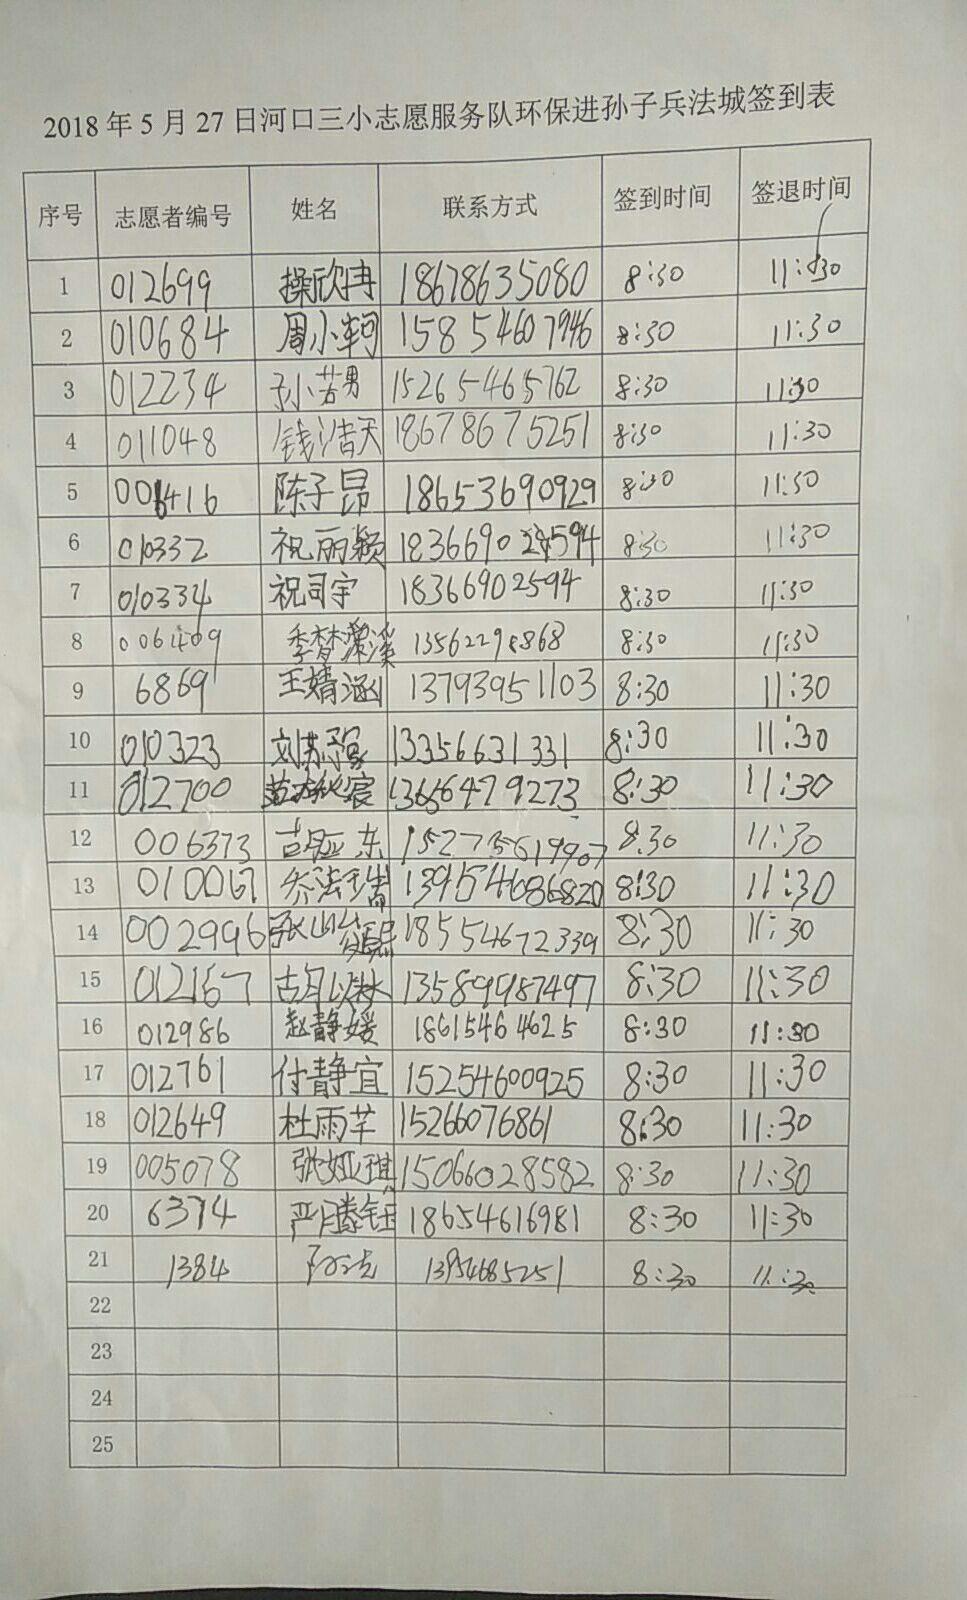 2018年5月27日河口三小志愿服务队环保进孙子兵法城签到表
序号 志愿者编号 姓名 联系方式 签到时间 签退时间
1 012699 操欣冉 18678635080 8:30 11:30
2 010684 周小轲 15854607946 8:30 11:30
3 012234 孙若男 15265465762 8:30 11:30
4 011048 钱浩天 18678675251 8:30 11:30
5 001416 陈子昂 18653690929 8:30 11:30
6 010332 祝丽颖 18366902594 8:30 11:30
7 010334 祝司宇 18366902594 8:30 11:30
8 006409 季梦溪 8:30 11:30
9 6869 王婧涵 13793951103 8:30 11:30
10 010323 刘苏 13356631331 8:30 11:30
11 012700 13656479273 8:30 11:30
12 006373 胡亚东 8:30 11:30
13 010067 乔法瑞 8:30 11:30
14 002996 张 18554672339 8:30 11:30
15 012167 胡以林 8:30 11:30
16 012986 赵静媛 18615464625 8:30 11:30
17 012761 付静宜 15254600925 8:30 11:30
18 012649 杜雨芊 15266076861 8:30 11:30
19 005078 张娅琪 15066028582 8:30 11:30
20 6374 严腾钰 18654616981 8:30 11:30
21 1384 13954685251 8:30 11:30
22
23
24
25